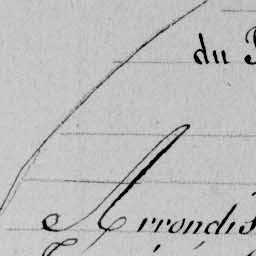 du
Arrondis